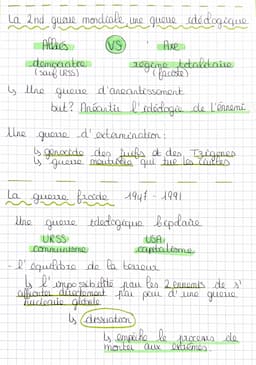 La 2nd guerre mondiale, une guerre idéologique
Alliés VS Axe
démocratie régime totalitaire
(sauf URSS) (fasciste)
↳ Une guerre d'anéantissement
but? Anéantir l'idéologie de l'ennemi
Une guerre d'extermination:
↳ génocide des juifs et des Tziganes
↳ guerre meurtrière qui tue les civils
La guerre froide 1947 - 1991
Une guerre idéologique bipolaire
URSS USA
communisme capitalisme
- l'équilibre de la terreur
↳ l'impossibilité par les 2 ennemis de s'
affronter directement par peur d'une guerre
nucléaire globale
↳ (dissuasion)
↳ empêche le processus de
montée aux extrêmes.